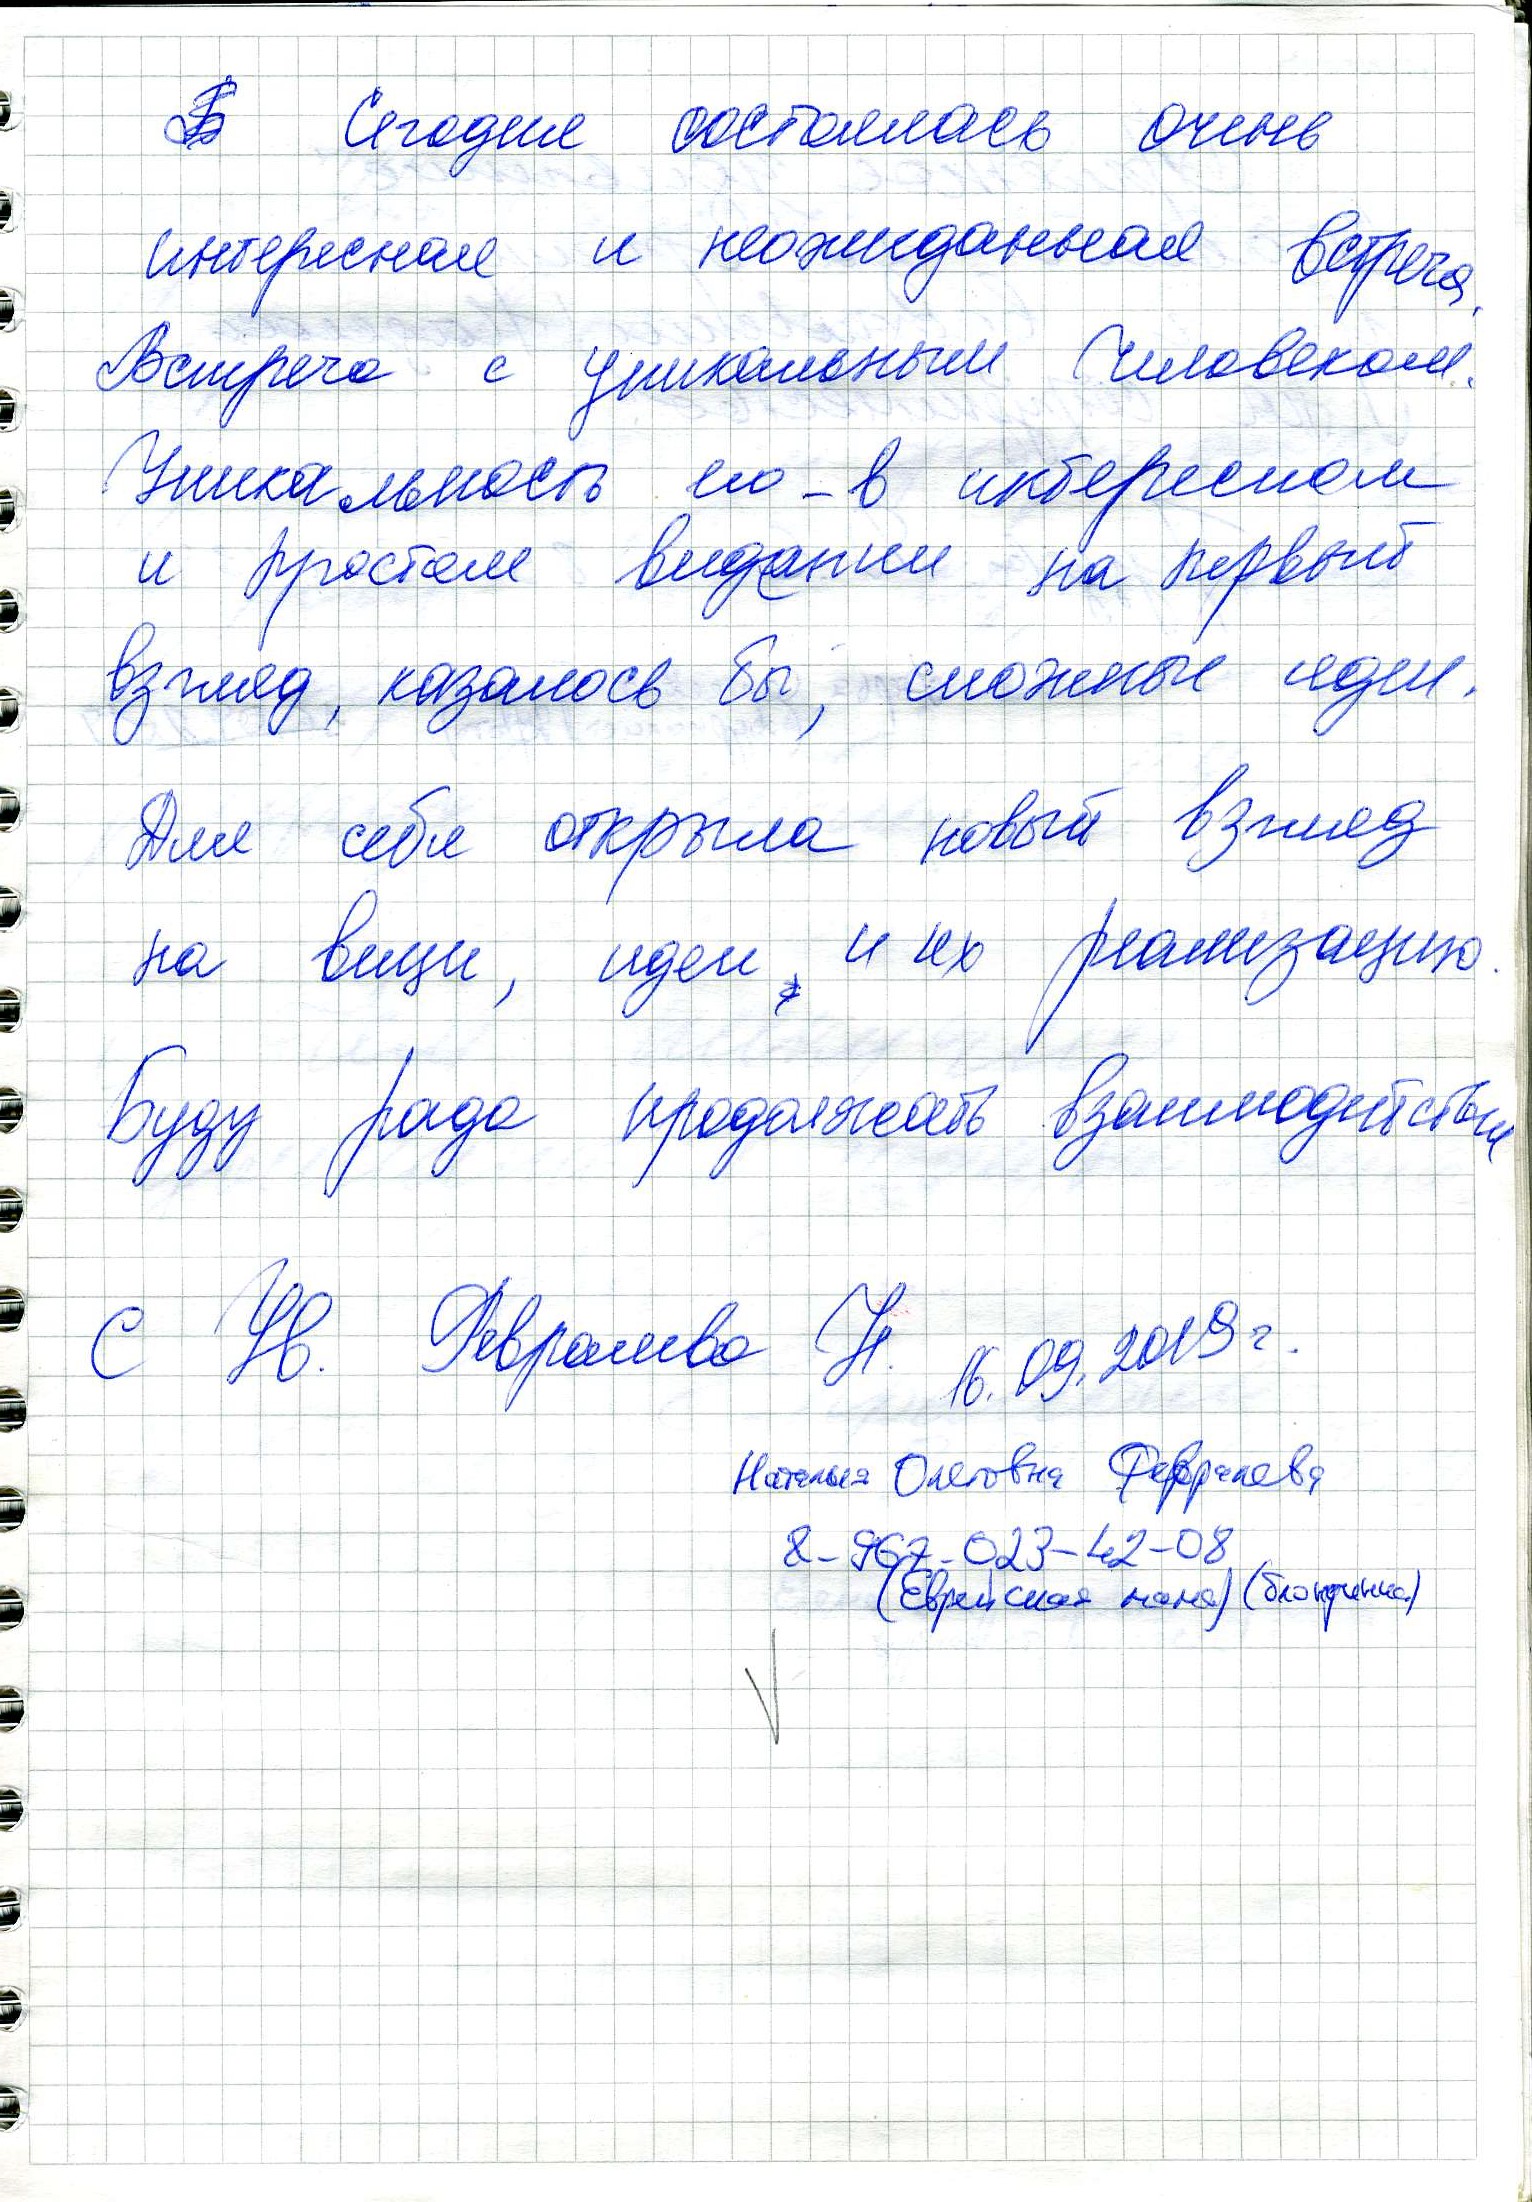 Сегодня состоялась очень
интересная и неожиданная встреча.
Встреча с уникальным Человеком.
Уникальность его – в интересном
и простом видении на первый
взгляд, казалось бы, сложные идеи.
Для себя открыла новый взгляд
на вещи, идеи и их реализацию.
Буду рада продолжать взаимодействие
С Ув. Февралева Н. 16.09.2019 г.
Наталья Олеговна Февралева
8-967-023-42-08
(Еврейская мама) (блондинка)